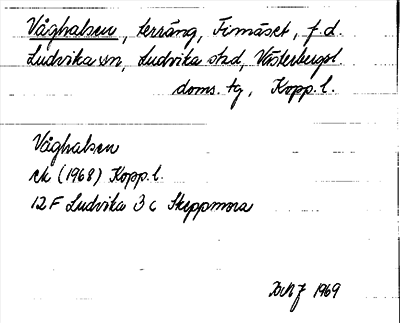 Våghalsen, terräng, Finnäset, f.d.
Ludvika sn, Ludvika stad, Västerbergsl.
doms. tg, Kopp. l.
Våghalsen
ek (1968) Kopp. l.
12 F Ludvika 3 c Skeppmora
1969